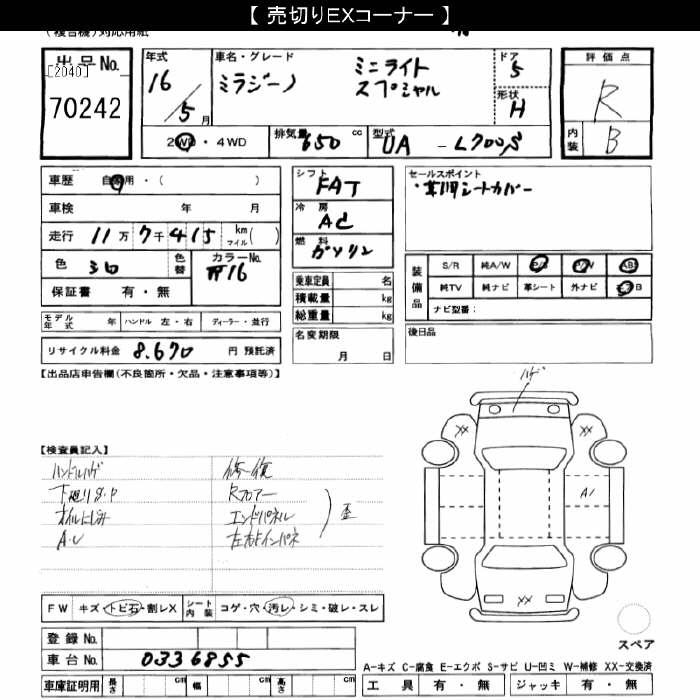 【 売切りEXコーナー 】
(複合機)対応用紙
出品No.
[2040]
70242
年式 16/5月
車名・グレード ミラジーノ ミニライト スプシャル
ドア 5
形状 H
評価点 R
内装 B
2WD・4WD
排気量 650 cc
型式 UA - L700S
車歴 自家用・( )
車検 年 月
走行 11万7千415 km マイル( )
色 シロ
色替
カラーNo. W16
保証書 有・無
シフト FAT
冷房 AC
燃料 ガソリン
セールスポイント
・革調シートカバー
乗車定員 名
積載量 kg
総重量 kg
装備品 S/R 純A/W P/S P/W AB
純TV 純ナビ 革シート 外ナビ エアB
ナビ型番:
モデル年式 年 ハンドル 左・右 ディーラー・並行
リサイクル料金 8.670 円 預託済
名変期限 月 日
後日品
【出品店申告欄(不良箇所・欠品・注意事項等)】
ハゲ
XX XX
A1
XX
【検査員記入】
ハンドルハゲ 修・復
下廻りS・P Rフロアー
オイルにじみ エンドパネル 歪
A・U 左右Rインパネ
FW キズ・トビ石・割レX シート内装 コゲ・穴・汚レ・シミ・破レ・スレ
登録No.
車台No. 0336855
車庫証明用 長さ cm 幅 cm 高さ cm
スペア
A-キズ C-腐食 E-エクボ S-サビ U-凹ミ W-補修 XX-交換済
工具 有・無 ジャッキ 有・無